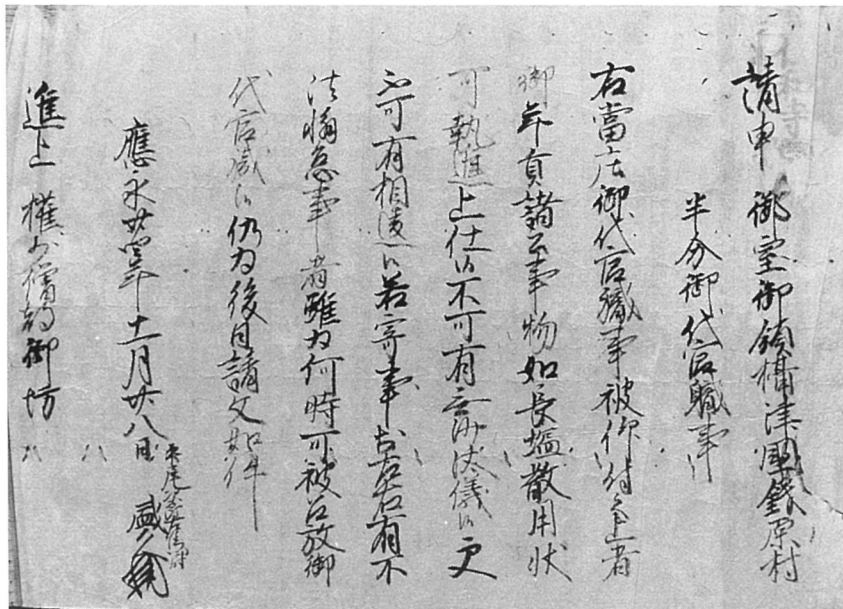 請申 御室御領攝津國錢原村
半分御代官職事
右當庄御代官職事被仰付候上者
御年貢諸公事物如長塩散用状
可執進上仕候不可有無沙汰儀候更
不可有相違候若寄事於左右有不
法懈怠事者雖為何時可被召放御
代官職候仍為後日請文如件
應永廿四年十一月廿八日
進上 權少僧都御坊